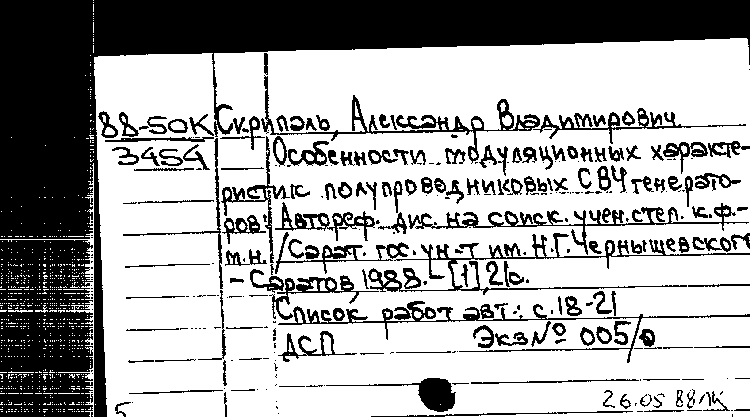 88-50К Скрипаль, Александр Владимирович
3454 Особенности модуляционных характе-
ристик полупроводниковых СВЧ генерато-
ров: Автореф. дис. на соиск. учен. степ. к.ф.-
м.н. /Сарат. гос. ун.-т им. Н.Г. Чернышевского
- Саратов, 1988. - [1], 21с.
Список работ авт.: с.18-21
ДСП Экз № 005/0
26.05 88
5